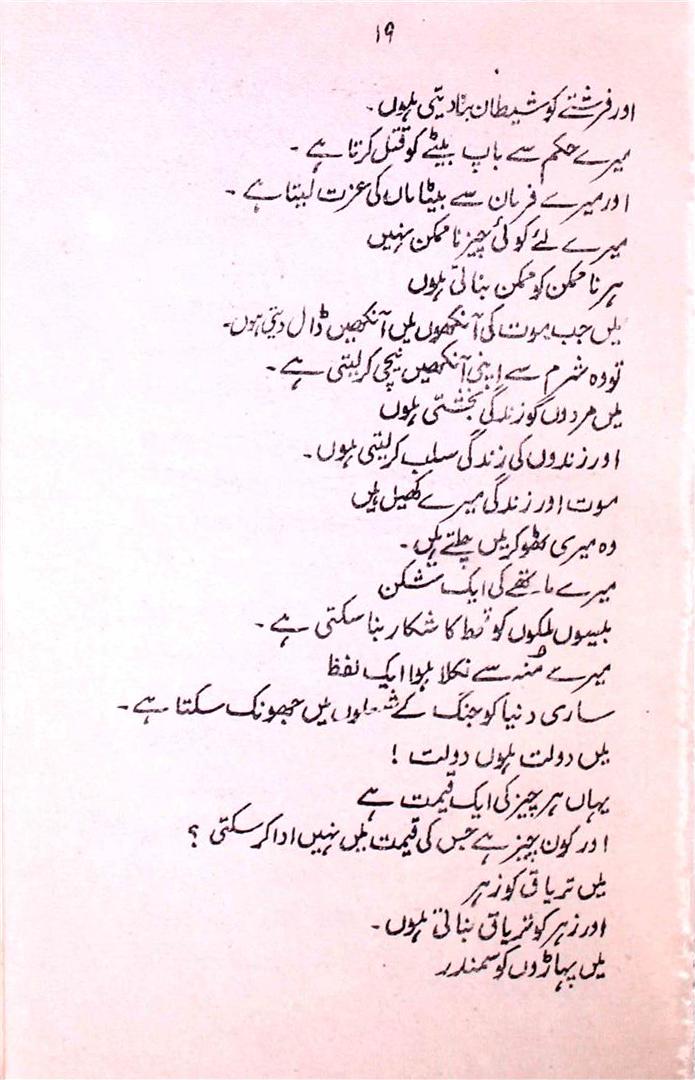 ۱۹
اور فرشتے کو شیطان بنا دیتی ہوں۔
میرے حکم سے باپ بیٹے کو قتل کرتا ہے۔
اور میرے فرمان سے بیٹا ماں کی عزت لیتا ہے۔
میرے لئے کوئی چیز ناممکن نہیں
ہر ناممکن کو ممکن بناتی ہوں
میں جب موت کی آنکھوں میں آنکھیں ڈال دیتی ہوں۔
تو وہ شرم سے اپنی آنکھیں نیچی کر لیتی ہے۔
میں مردوں کو زندگی بخشتی ہوں
اور زندوں کی زندگی سلب کر لیتی ہوں۔
موت اور زندگی میرے کھیل ہیں
وہ میری ٹھوکر میں پلتے ہیں۔
میرے ماتھے کی ایک شکن
بیسیوں ملکوں کو قحط کا شکار بنا سکتی ہے۔
میرے مُنہ سے نکلا ہوا ایک لفظ
ساری دنیا کو جنگ کے شعلوں میں جھونک سکتا ہے۔
میں دولت ہوں دولت!
یہاں ہر چیز کی ایک قیمت ہے
اور کون چیز ہے جس کی قیمت میں نہیں ادا کر سکتی؟
میں تریاق کو زہر
اور زہر کو تریاق بناتی ہوں۔
میں پہاڑوں کو سمندر